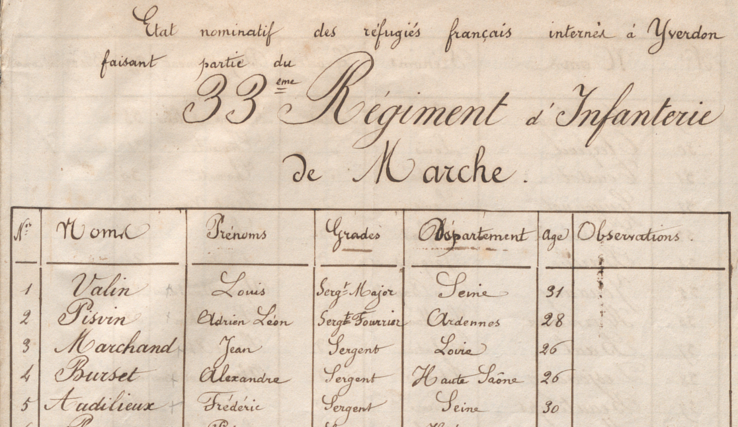 Etat nominatif des réfugiés français internés à Yverdon
faisant partie du
33eme Régiment d'Infanterie
de Marche.
Nos Noms Prénoms Grades Département Age Observations.
1 Valin Louis Sergt. Major Seine 31
2 Pisvin Adrien Léon Sergt. Fourrier Ardennes 28
3 Marchand Jean Sergent Loire 26
4 Burset Alexandre Sergent Haute Saône 26
5 Audilieux Frédéric Sergent Seine 30